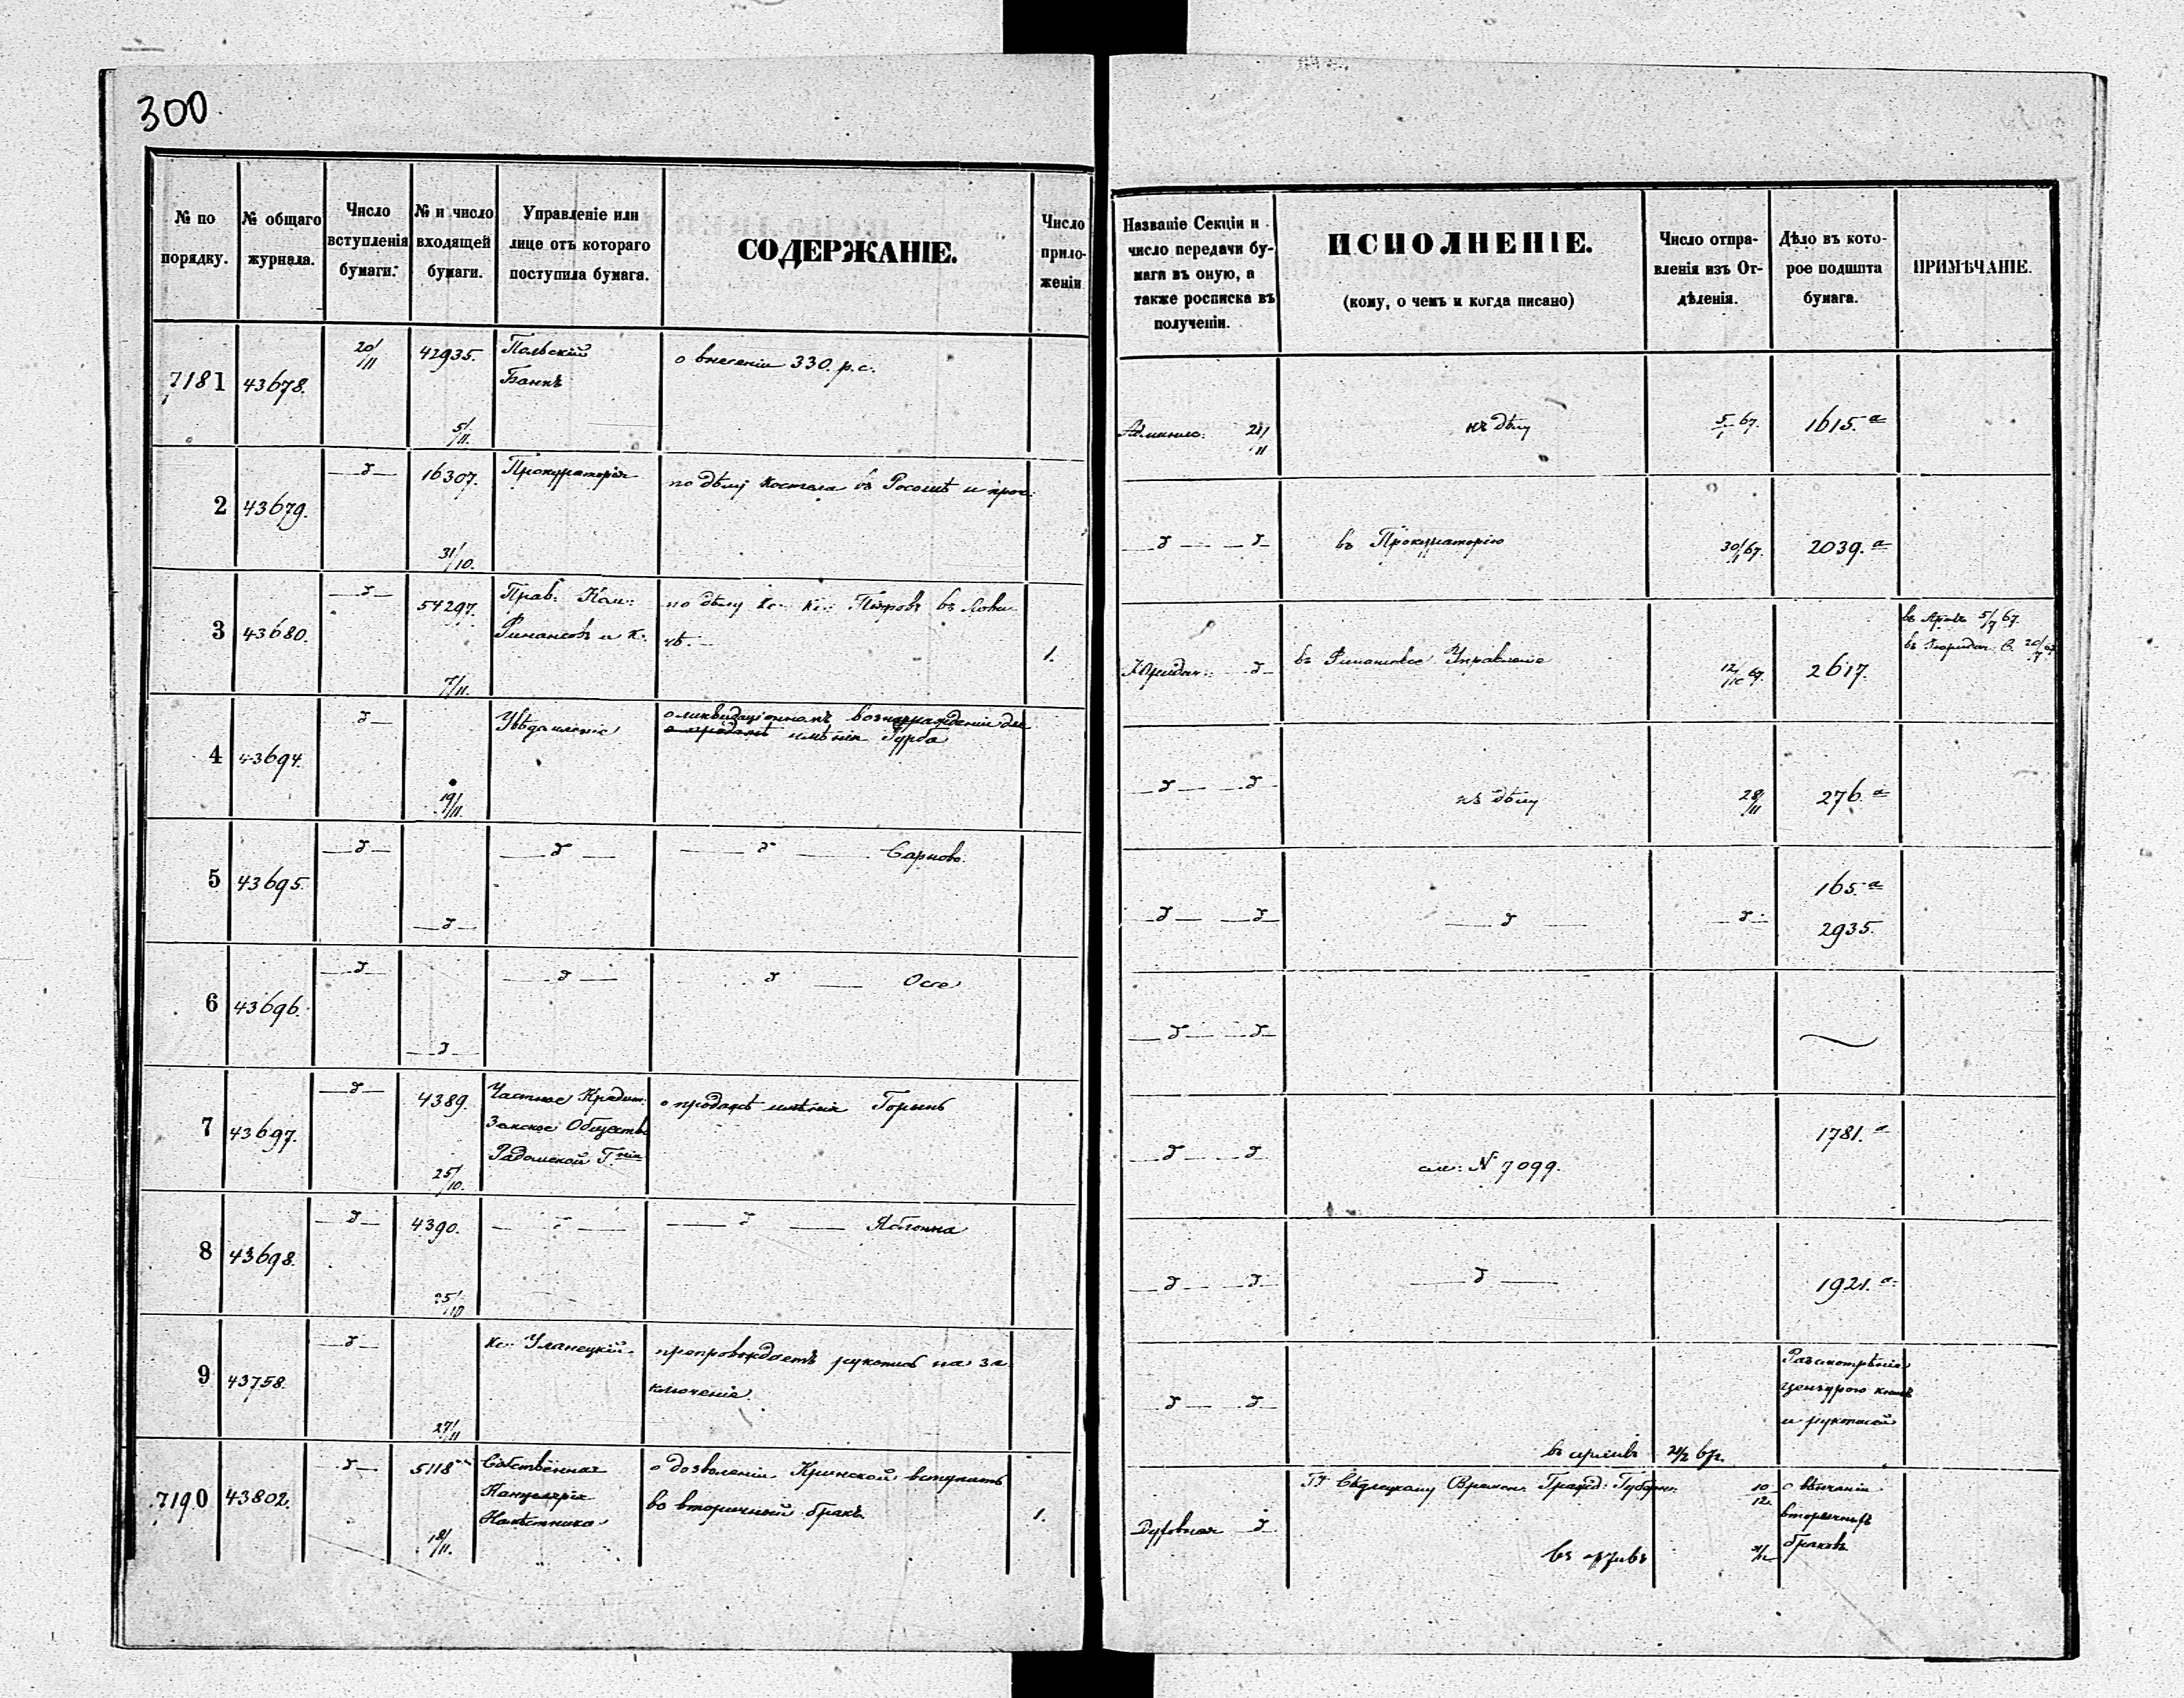 300
№ по порядку.
№ общаго журнала.
Число вступленія бумаги.
№ и число входящей бумаги.
Управленіе или лице отъ котораго поступила бумага.
СОДЕРЖАНІЕ.
Число приложеніи
Названіе Секціи и число передачи бумаги въ оную, а также росписка въ полученіи.
ИСПОЛНЕНІЕ.
(кому, о чемъ и когда писано)
Число отправленія изъ Отдѣленія.
Дѣло въ которое подшита бумага.
ПРИМѢЧАНІЕ.
7181 43678. 20/11 42935. Польскій о внесеніи 330 р.с.
Банкъ
5/11. 21/11 къ дѣлу 5/1 67. 1615.a
2 43679. —д— 16307. Прокураторія по дѣлу костела въ и проч:
31/10. —д— —д— въ Прокураторію 30/1 67. 2039.a
3 43680. —д— 54297. Прав: Ком: по дѣлу Кс: Кс:
Финансовъ и К. 1.
7/11. Юридич: д— въ Финансовое Управленіе 12/10 67. 2617.
въ 5/7 67.
въ Юридич. С. 20/7 67
4 43694. д— Увѣдомленіе о ликвидаціонномъ вознагражденіи для
имѣнія Гурба
19/11. —д— —д— къ дѣлу 28/11 276.a
5 43695. —д— —д— —д— Сарново.
—д— —д— —д— —д— д— 165.a
2935.
6 43696. —д— —д— д — Осse
—д— —д— —д—
7 43697. —д— 4389. Частное Кредит. о продажѣ имѣнія Горынь
Земское Общество
Радомской Г.ніи
25/10. —д— —д— см: N 7099. 1781.a
8 43698. —д— 4390. —д— —д— Яблонна
25/10 —д— —д— —д— 1921.a
9 43758. —д— Кс: Уланецкій препровождаетъ рукопись на за
ключеніе.
27/11 —д— —д— Разсмотрѣніе
цензурою книгъ
и рукописей
въ архивъ 21/2 67г.
7190 43802. —д— 5118 Собственная о дозволеніи Кринской вступить
Канцелярія во вторичный бракъ.
Намѣстника 1.
18/11. Духовная д Гу Сѣдлецкому Времен. Гражд: Губерн. 10/12. о вѣнчаніи
вторичныхъ
браковъ
въ архивъ